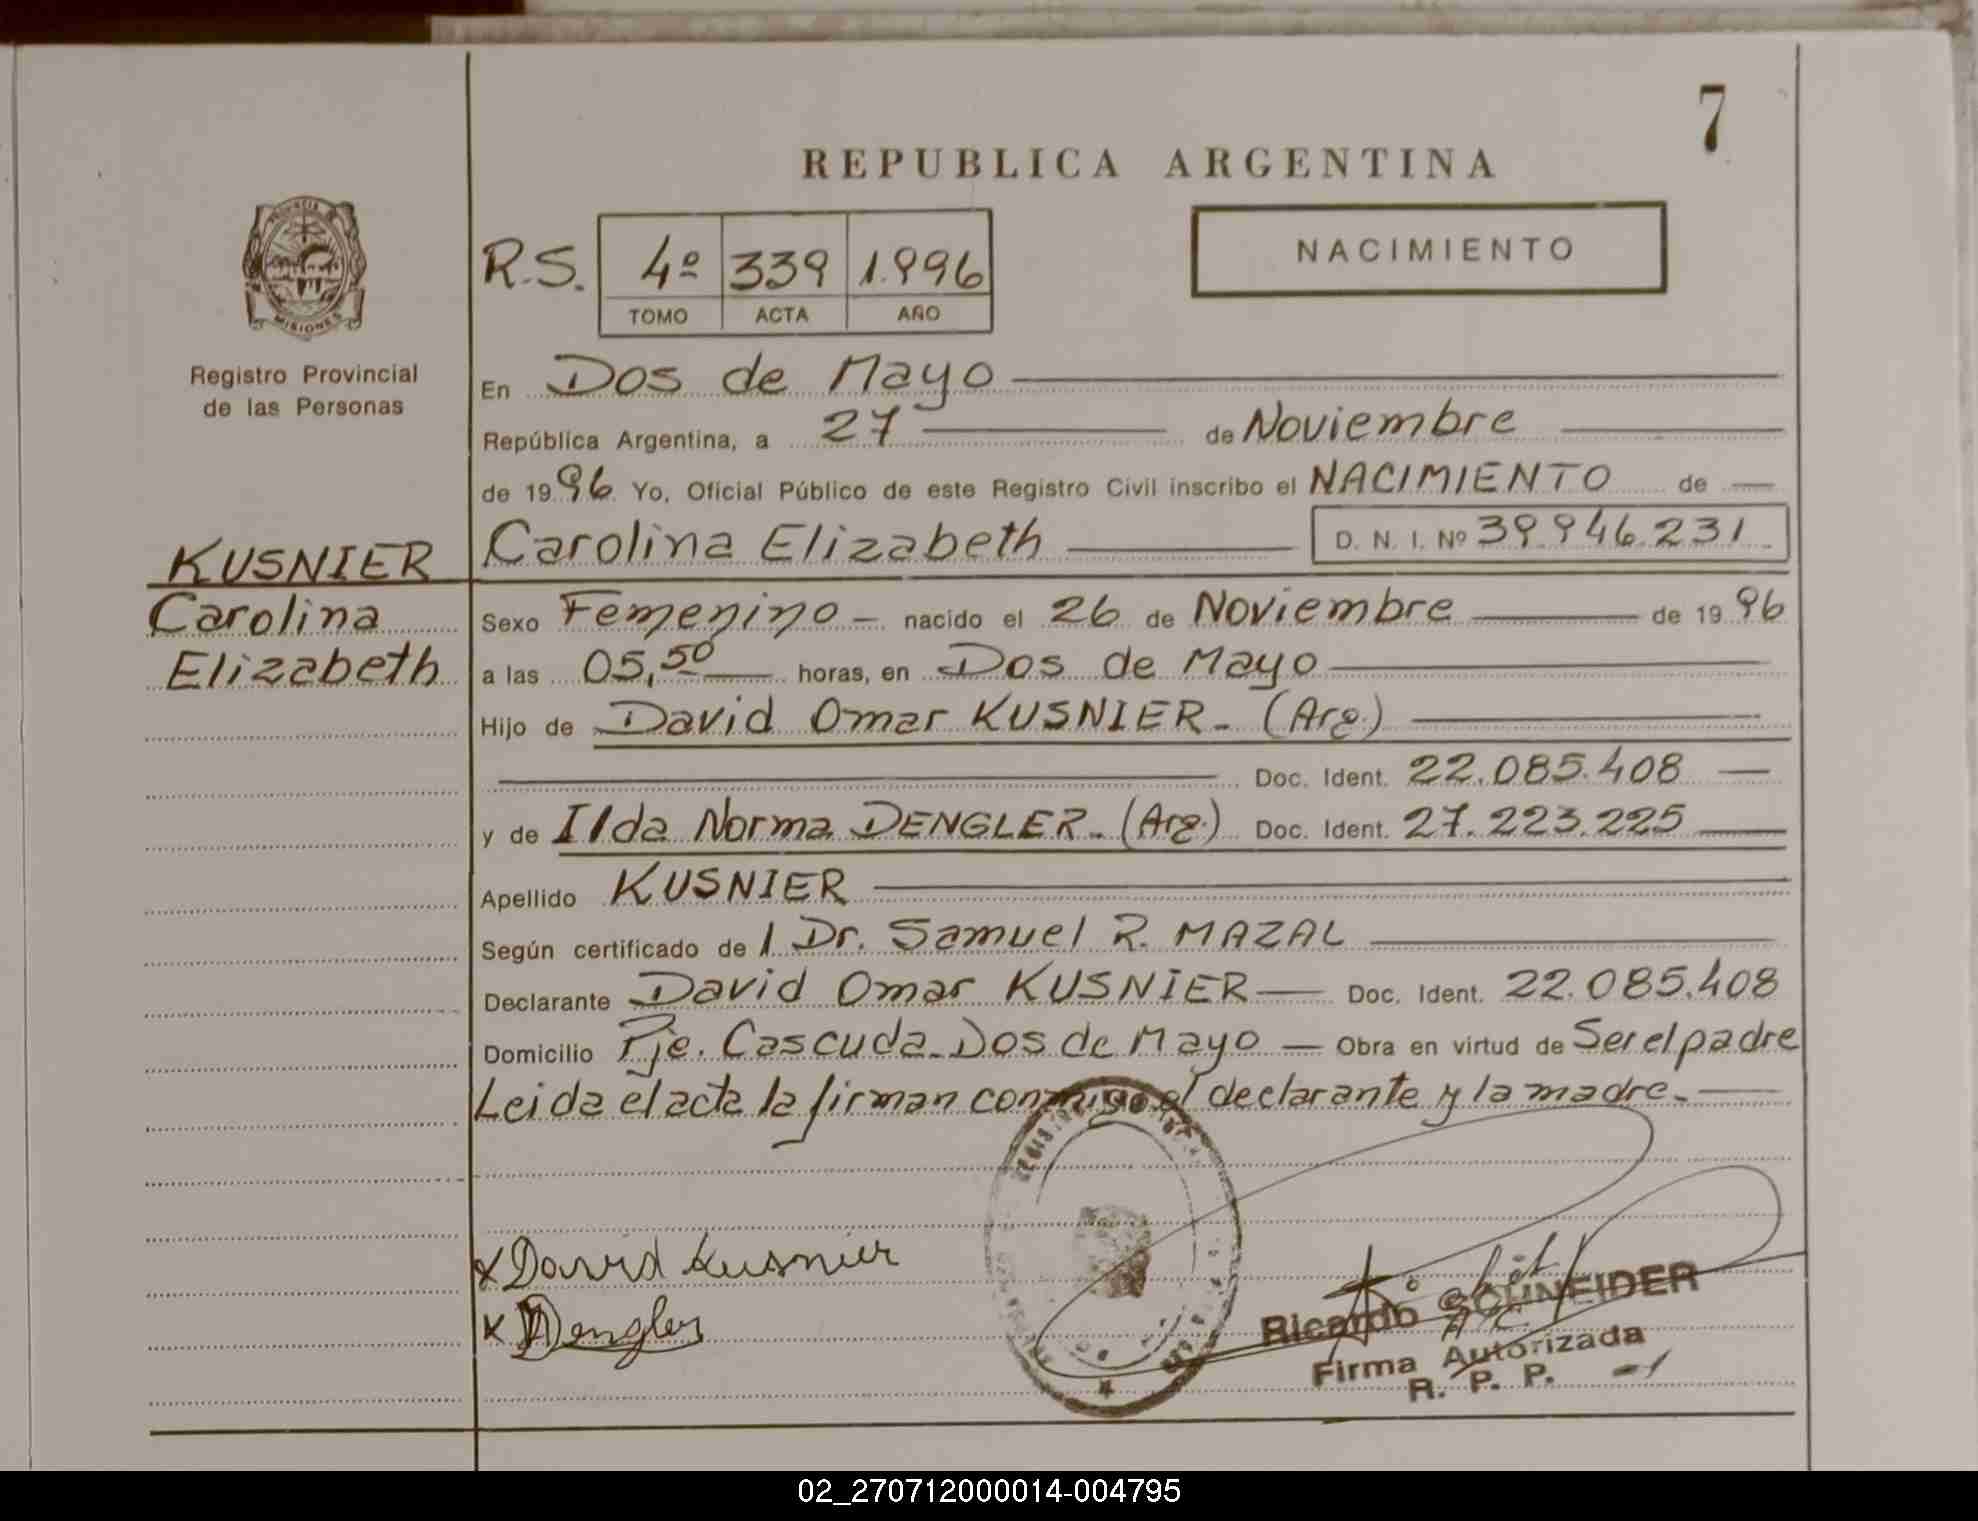 7
REPUBLICA ARGENTINA
PROVINCIA DE
MISIONES
R.S. 4º 339 1.996
TOMO ACTA AÑO
NACIMIENTO
Registro Provincial
de las Personas
En Dos de Mayo
República Argentina, a 27 de Noviembre
de 1996 Yo, Oficial Público de este Registro Civil inscribo el NACIMIENTO de
KUSNIER
Carolina
Elizabeth
Carolina Elizabeth D. N. I. Nº 39.946.231
Sexo Femenino nacido el 26 de Noviembre de 1996
a las 05,50 horas, en Dos de Mayo
Hijo de David Omar KUSNIER. (Arg.)
Doc. Ident. 22.085.408
y de Ilda Norma DENGLER. (Arg.) Doc. Ident. 27.223.225
Apellido KUSNIER
Según certificado de l Dr. Samuel R. MAZAL
Declarante David Omar KUSNIER Doc. Ident. 22.085.408
Domicilio Pje. Cascuda. Dos de Mayo Obra en virtud de Ser el padre
Leida el acta la firman conmigo el declarante y la madre.
x David Kusnier
x Dengler
Ricardo SCHNEIDER
Firma Autorizada
R. P. P.
02_270712000014-004795